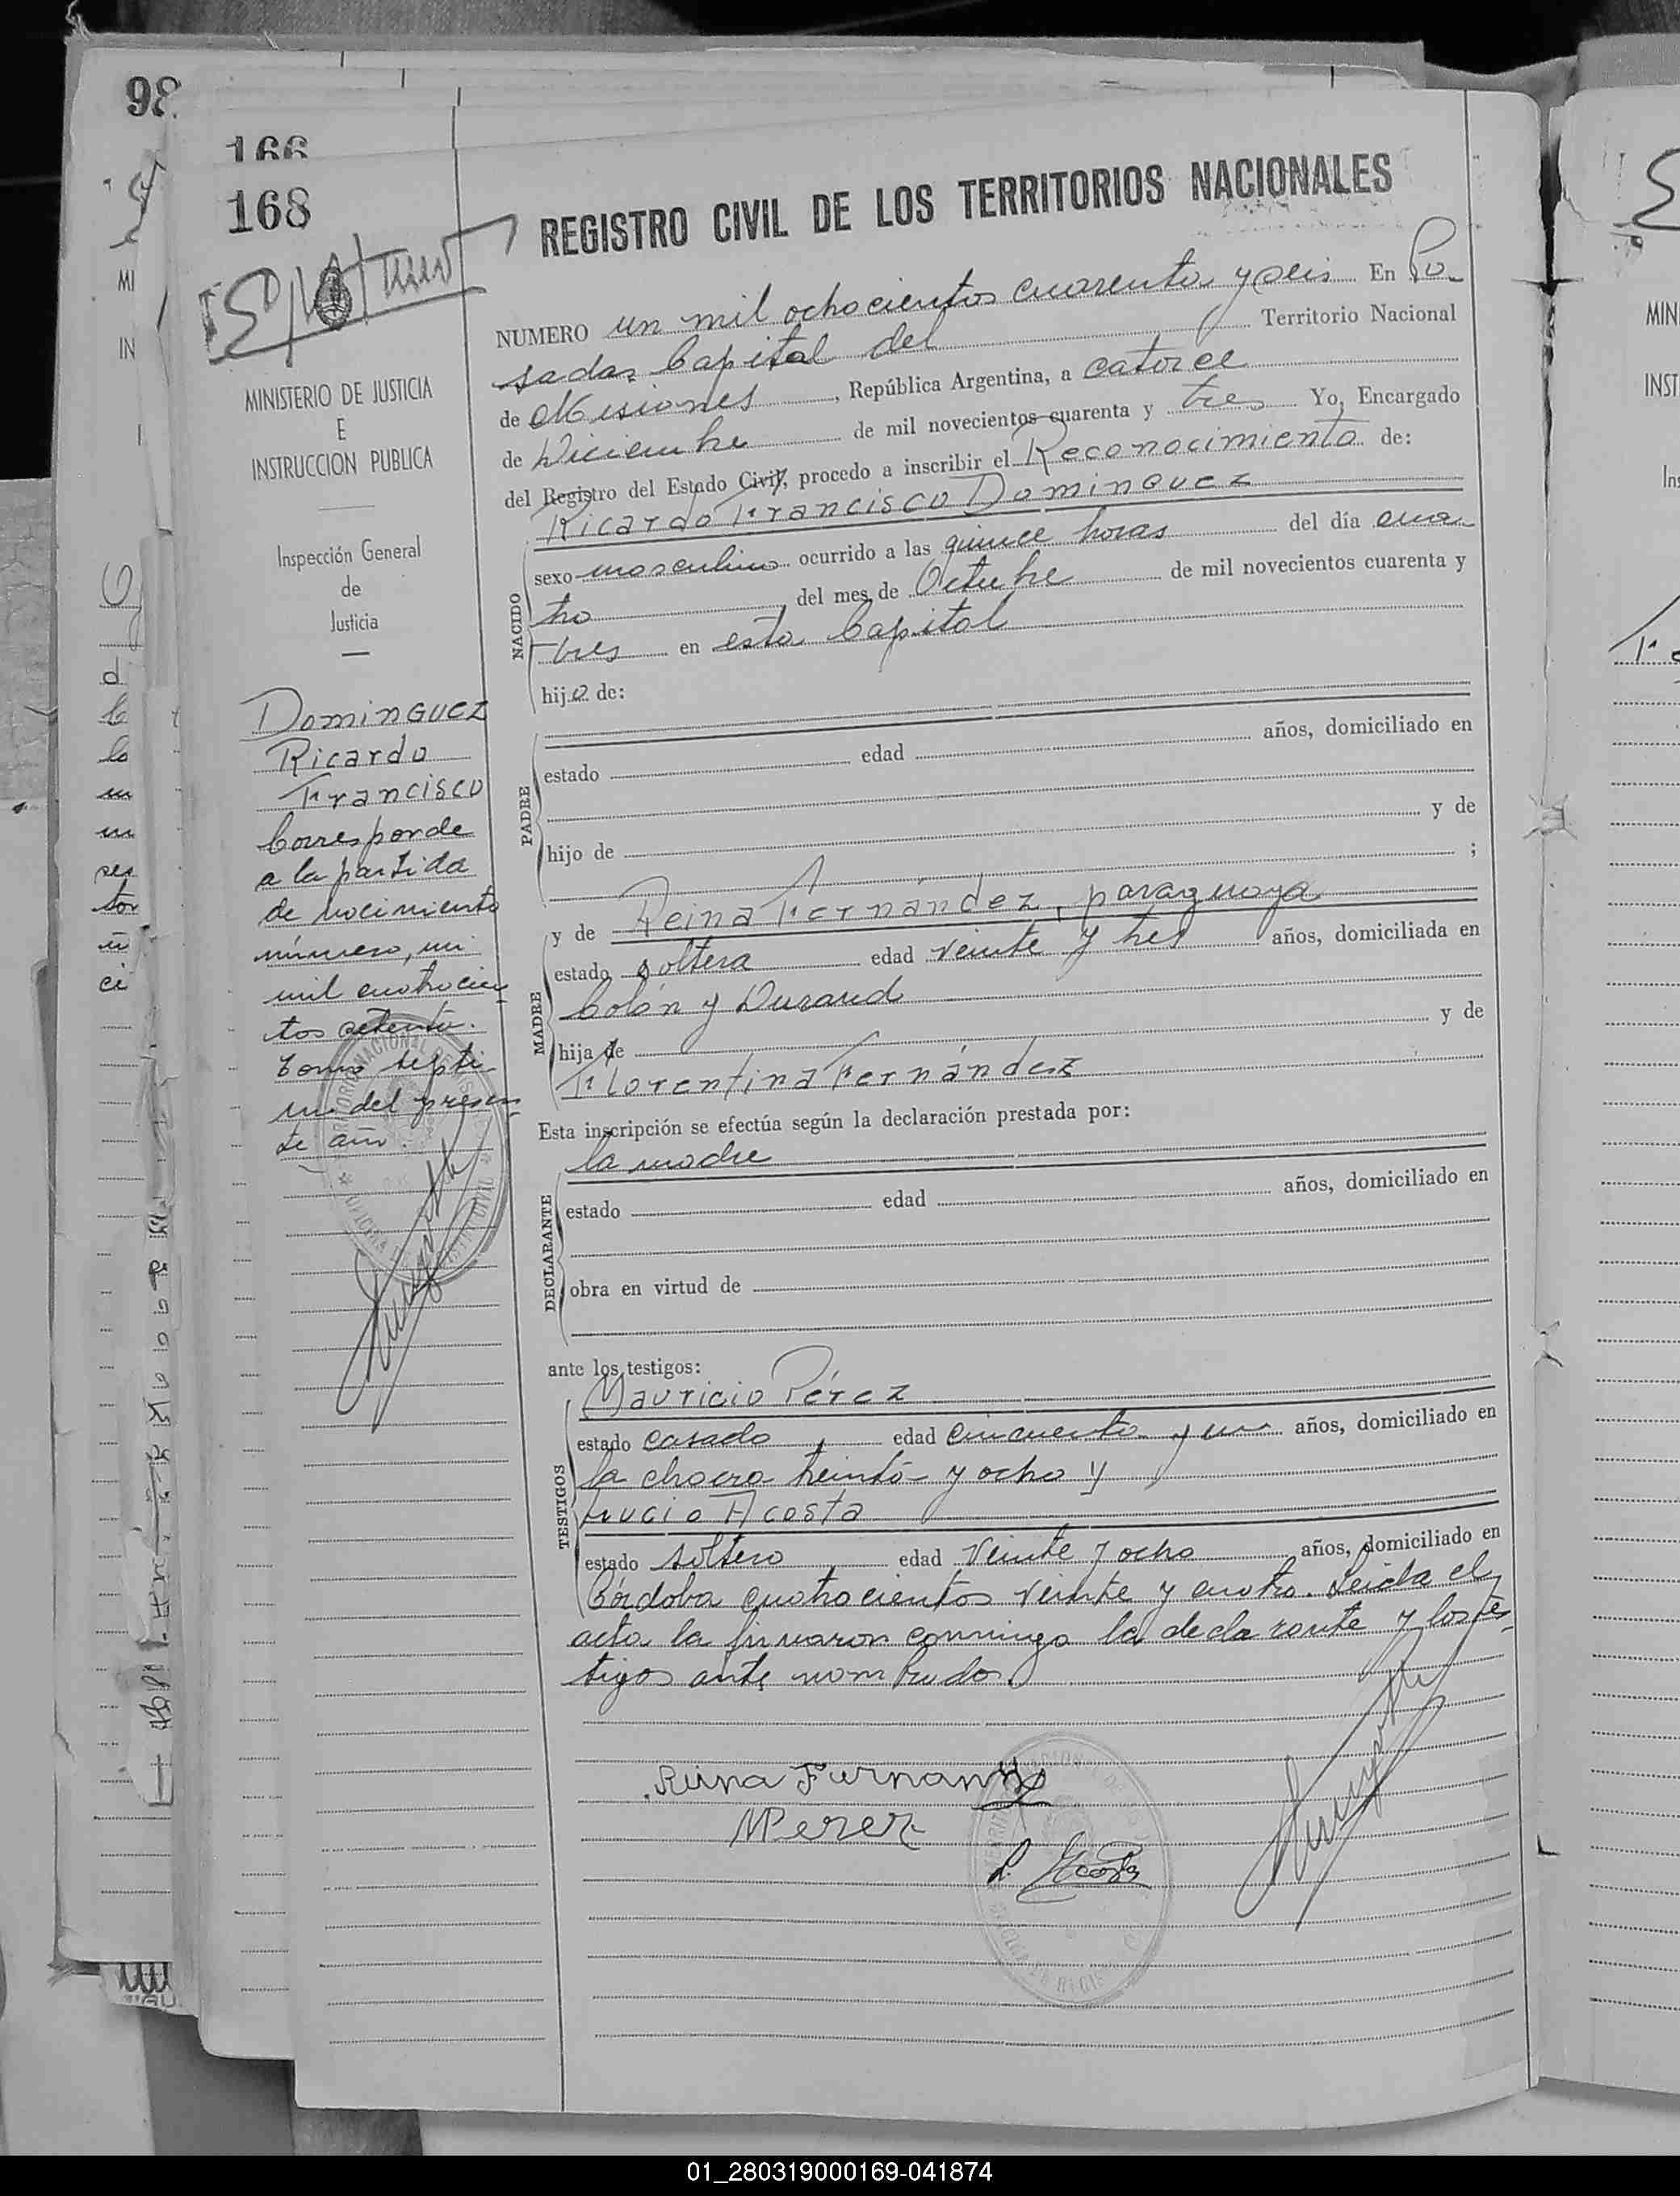 98
166
168
MINISTERIO DE JUSTICIA
E
INSTRUCCION PUBLICA
Inspección General
de
Justicia
DOMINGUEZ
Ricardo
Francisco
Corresponde
a la partida
de nacimiento
número, un
mil cuatrocien
tos setenta.
tomo septi
mo del presen
te año.
REGISTRO CIVIL DE LOS TERRITORIOS NACIONALES
NUMERO un mil ochocientos cuarenta y seis En Po-
sadas Capital del Territorio Nacional
de Misiones, República Argentina, a catorce
de Diciembre de mil novecientos cuarenta y tres Yo, Encargado
del Registro del Estado Civil, procedo a inscribir el Reconocimiento de:
Ricardo Francisco Dominguez
NACIDO
sexo masculino ocurrido a las quince horas del día cua-
tro del mes de Octubre de mil novecientos cuarenta y
tres en esta Capital
hijo de:
PADRE
estado edad años, domiciliado en
hijo de y de
;
MADRE
y de Reina Fernández, paraguaya
estado soltera edad veinte y tres años, domiciliada en
Colón y Durand
hija de y de
Florentina Fernández
Esta inscripción se efectúa según la declaración prestada por:
la madre
DECLARANTE
estado edad años, domiciliado en
obra en virtud de
ante los testigos:
TESTIGOS
Mauricio Pérez
estado casado edad cincuenta y un años, domiciliado en
la chacra treinta y ocho y
Lucio Acosta
estado soltero edad veinte y ocho años, domiciliado en
Córdoba cuatrocientos veinte y cuatro. Leida el
acta la firmaron conmigo la declarante y los tes-
tigos ante nombrados
Reina Fernandez
MPerez
L. Acosta
MIN
INST
Ins
01_280319000169-041874